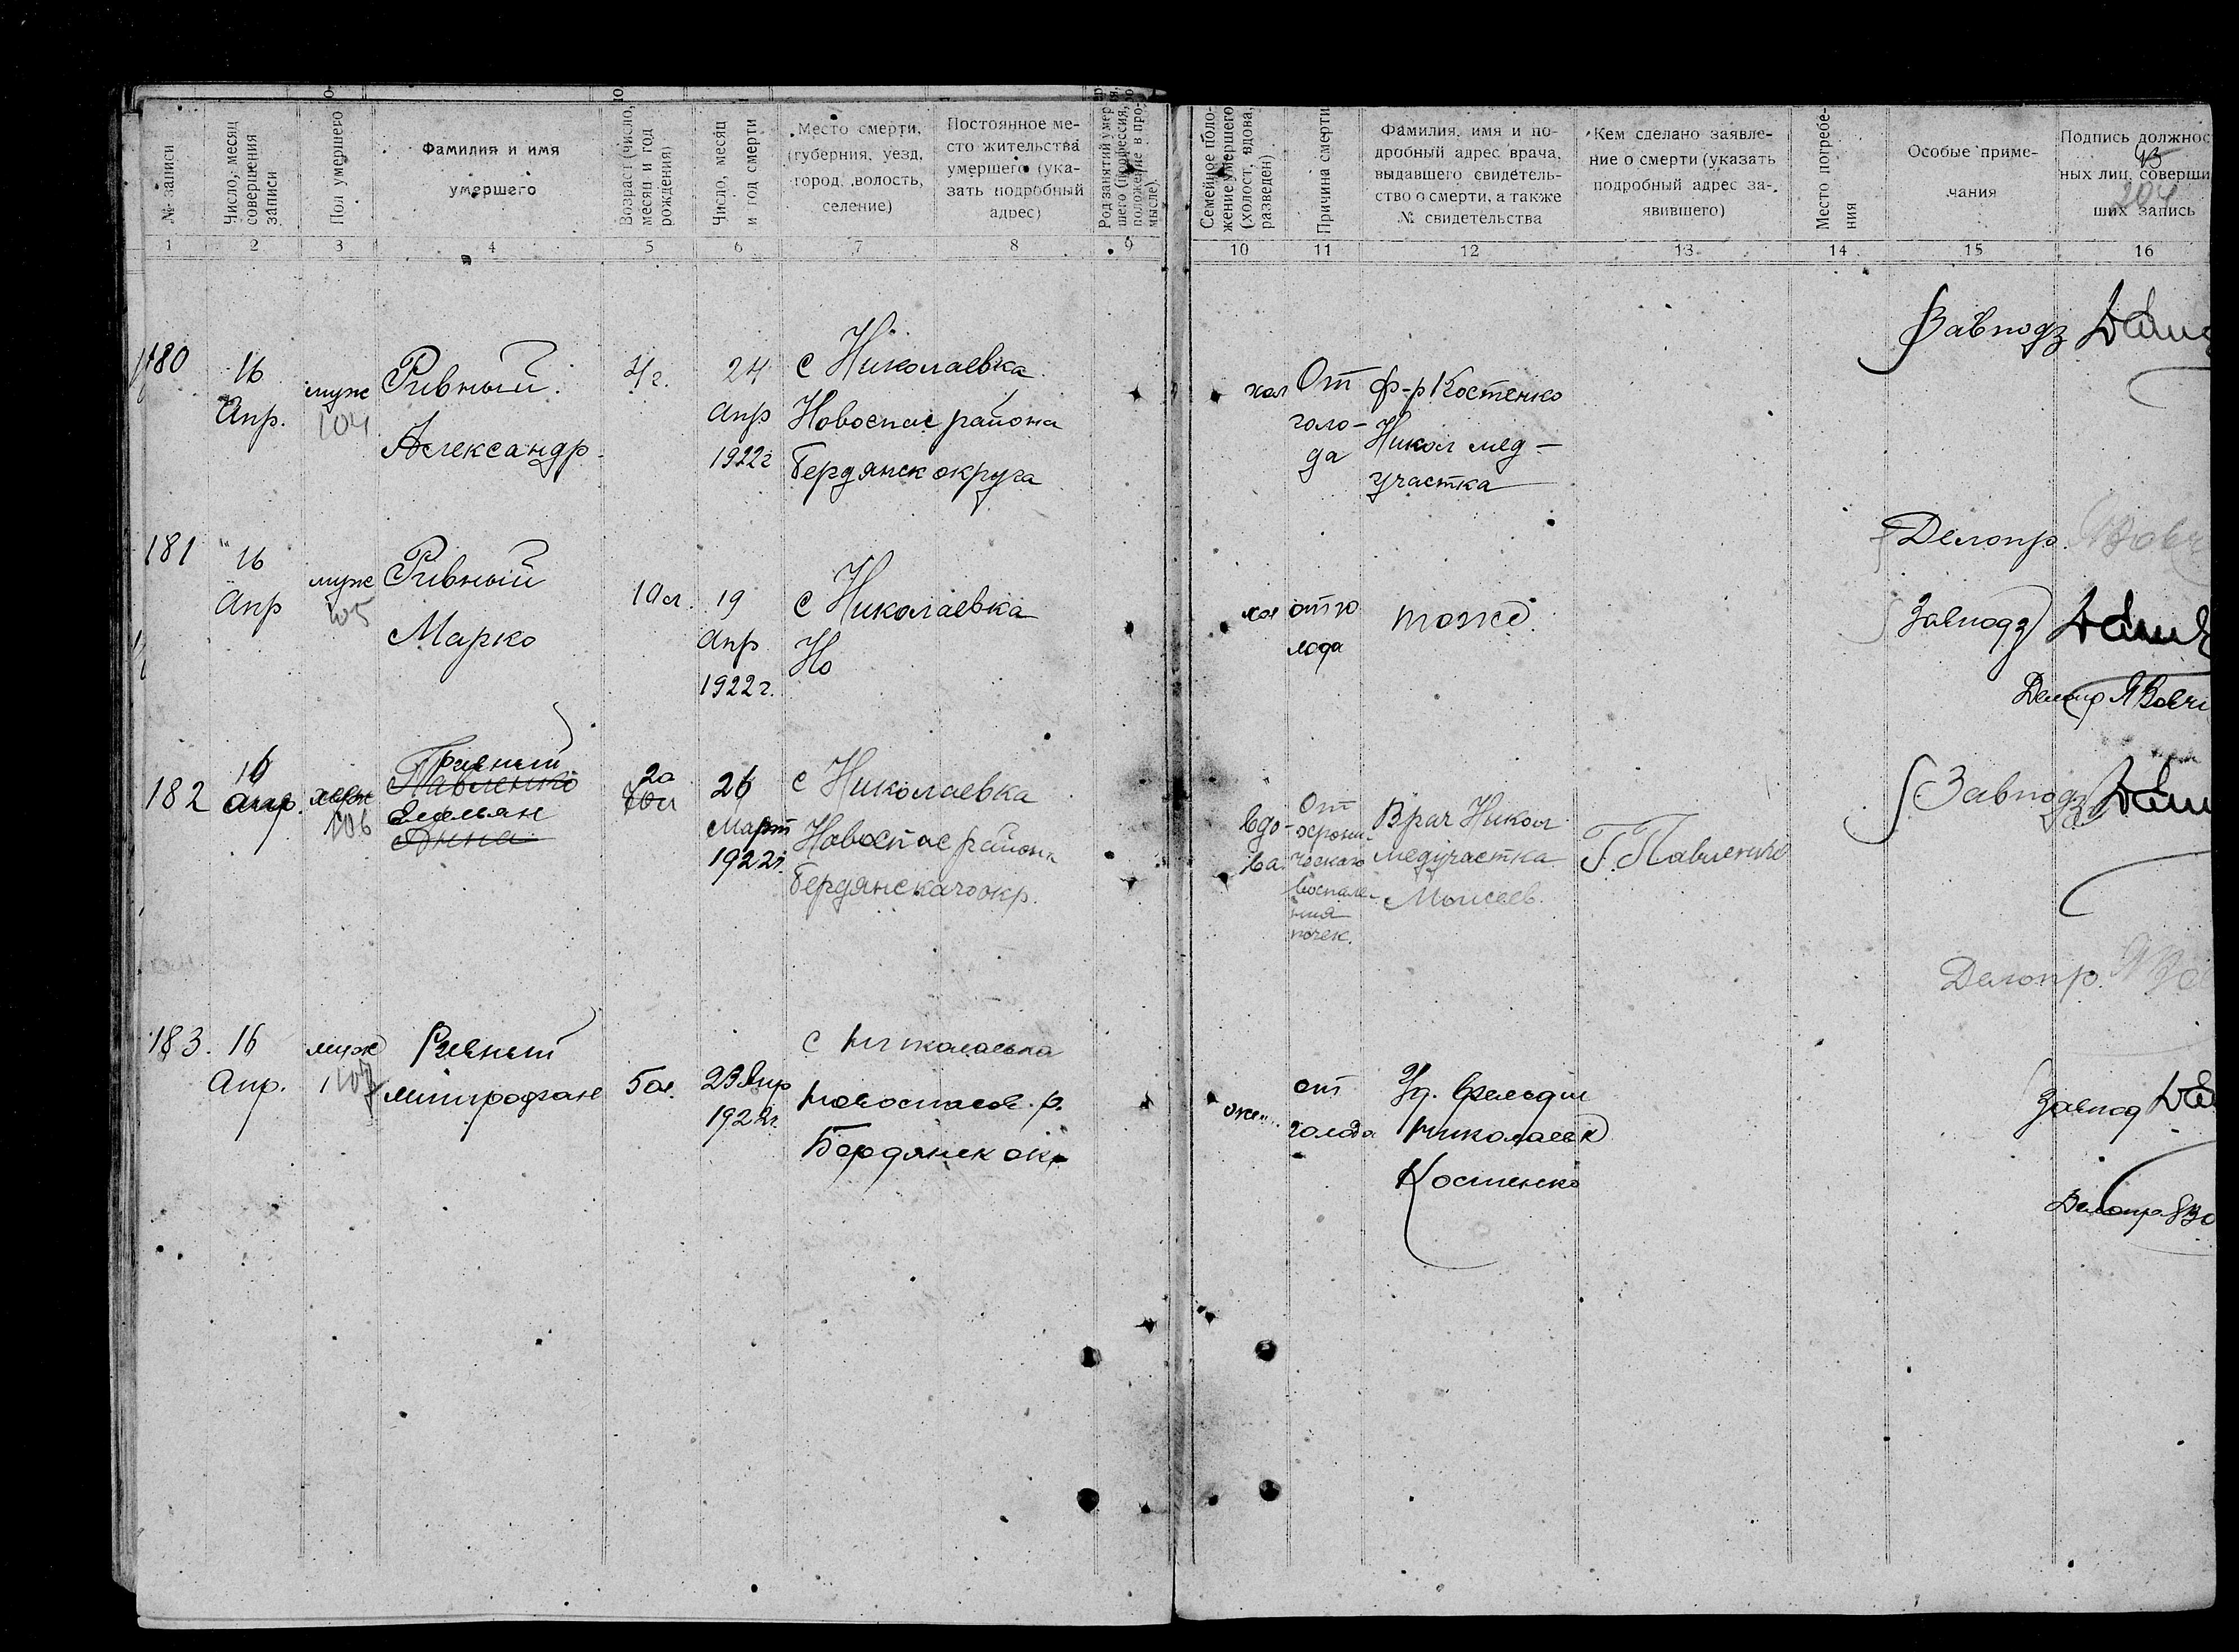 № записи
Число, месяц
совершения
записи
Пол умершего
Фамилия и имя
умершего
Возраст (число,
месяц и год
рождения)
Число, месяц
и год смерти
Место смерти,
(губерния, уезд,
город, волость,
селение)
Постоянное ме-
сто жительства
умершего (ука-
зать подробный
адрес)
Род занятий умер-
шего (профессия,
положение в про-
мысле)
Семейное поло-
жение умершего
(холост, вдова,
разведен)
Причина смерти
Фамилия, имя и по-
дробный адрес врача,
выдавшего свидетель-
ство о смерти, а также
№ свидетельства
Кем сделано заявле-
ние о смерти (указать
подробный адрес за-
явившего)
Место погребе-
ния
Особые приме-
чания
Подпись должнос
ных лиц, соверши
ших запись
204
1 2 3 4 5 6 7 8 9 10 11 12 13 14 15 16
180
16
Апр.
муж
104
Ривный
Александр
4 г.
24
апр
1922 г
с Николаевка
Новоспас района
Бердянск округа
хол
От
голо-
да
ф-р Костенко
Никол мед-
участка
Завподз
Делопр.
181
16
Апр
муж
105
Ривный
Марко
10 л.
19
апр
1922 г.
с Николаевка
Но
хол
от го
лода
тоже
Завподз
Делопр
182
16
апр.
106
Ривный
Павленко
Емельян
Анна
20
70 л
26
Март
1922 г.
с Николаевка
Новоспас района
Бердянскаго окр.
вдо-
ва
От
хрони-
ческаго
воспале-
ния
почек.
Врач Никол
медучастка
Моисеев.
Г. Павленко
Завподз
Делопр.
183.
16
Апр.
муж
107
Ривный
Митрофан
5 л.
23 Апр
1922 г.
с Николаевка
Новоспасов. р.
Бердянск окр
от
голода
Николаевк
Костенко
Завпод
Делопр